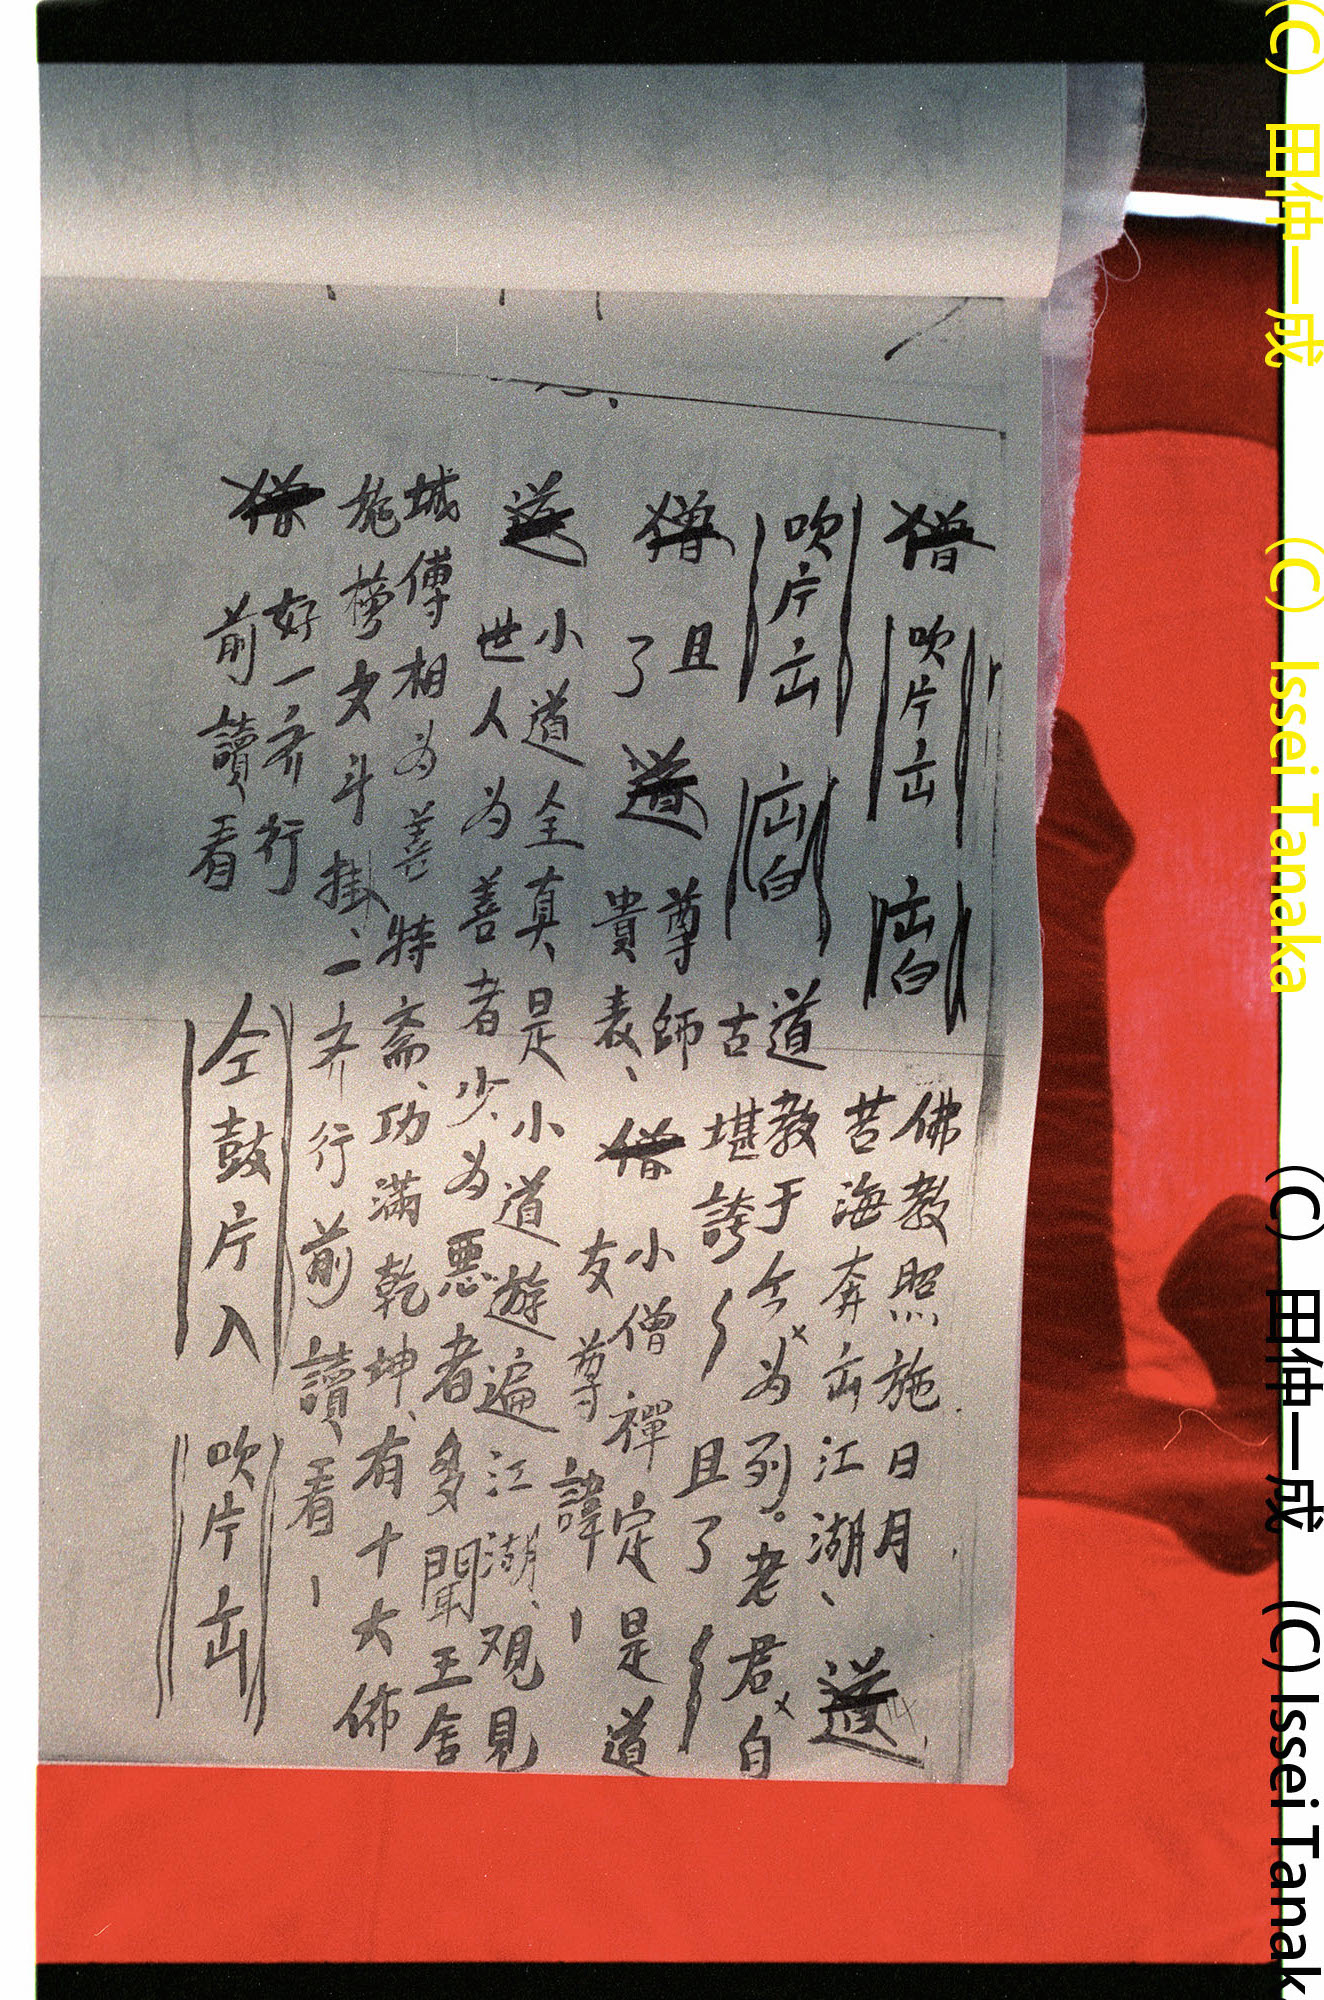 僧 吹片出 出白 佛教照施日月
苦海奔出江湖、 道
吹片出 出白 道教于今为列。老君自
古堪誇 且了
僧 且了 道 尊師
貴表、 僧 小僧禪定是道
友 尊諱
道 小道全真、是小道遊遍江湖、观見
世人为善者少、为惡者多聞王舍
城傅相为善 特斋、功滿乾坤、有十大佈
施榜文斗掛、一齐行前讀看
僧 好一齐行
前讀看 仝鼓片入 吹片出
(C) 田仲一成 (C) Issei Tanaka
(C) 田仲一成 (C) Issei Tanak